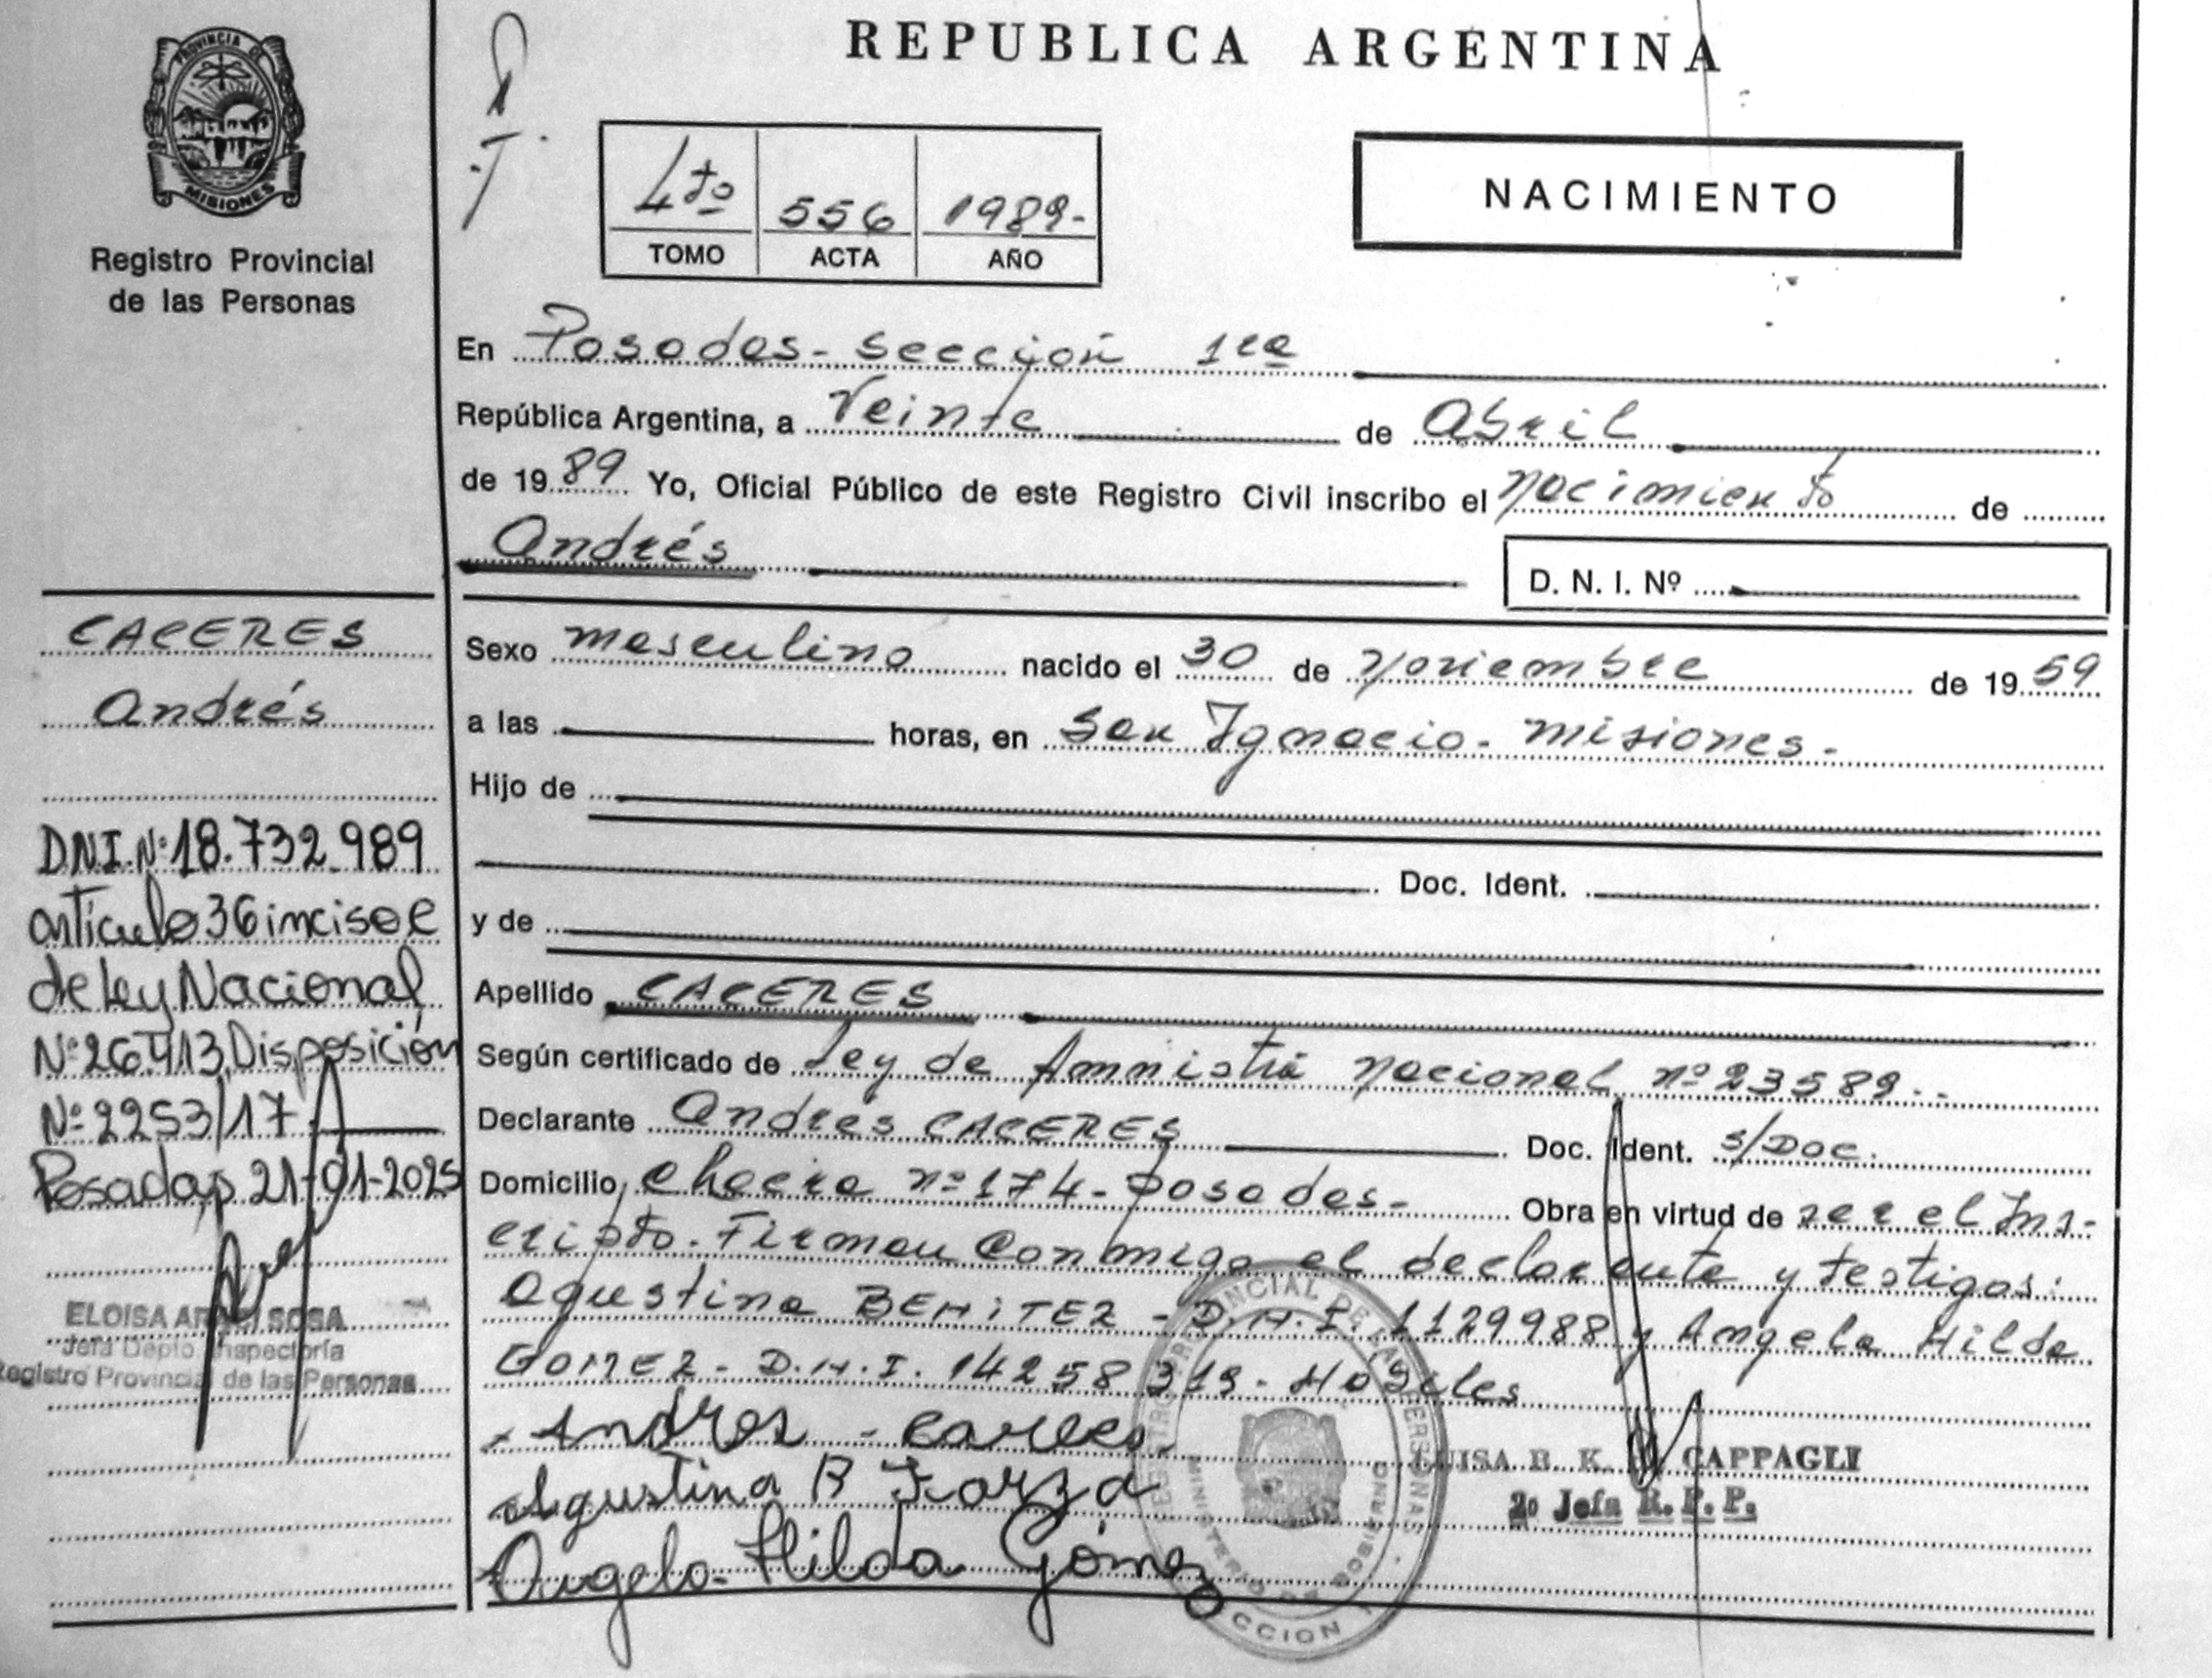 REPUBLICA ARGENTINA
PROVINCIA DE
MISIONES
Registro Provincial
de las Personas
4to 556 1989-
TOMO ACTA AÑO
NACIMIENTO
En Posadas - Sección 1ra
República Argentina, a Veinte de Abril
de 1989 Yo, Oficial Público de este Registro Civil inscribo el nacimiento de
Andrés
D. N. I. Nº
CACERES
Andrés
DNI.Nº18.732.989
artículo 36 inciso C
de Ley Nacional
Nº26.413, Disposición
Nº2253/17
Posadas, 21-01-2025
ELOISA SOSA
Jefa Depto. Inspectoría
Registro Provincial de las Personas
Sexo masculino nacido el 30 de Noviembre de 1959
a las horas, en San Ignacio - Misiones -
Hijo de
Doc. Ident.
y de
Apellido CACERES
Según certificado de Ley de Amnistía Nacional nº 23589..
Declarante Andres CACERES Doc. Ident. s/Doc.
Domicilio, Chacra nº 174 - Posadas - Obra en virtud de ser el Ins-
cripto. Firman conmigo el declarante y testigos:
Agustina BENITEZ - D.N.I. 1129988 y Angela Hilda
GOMEZ - D.N.I. 14258319 - Habiles
Andres
Agustina B
Angela Hilda Gómez
LUISA B. K. CAPPAGLI
2º Jefa R. P. P.
REGISTRO PROVINCIAL DE LAS PERSONAS
MINISTERIO DE GOBIERNO